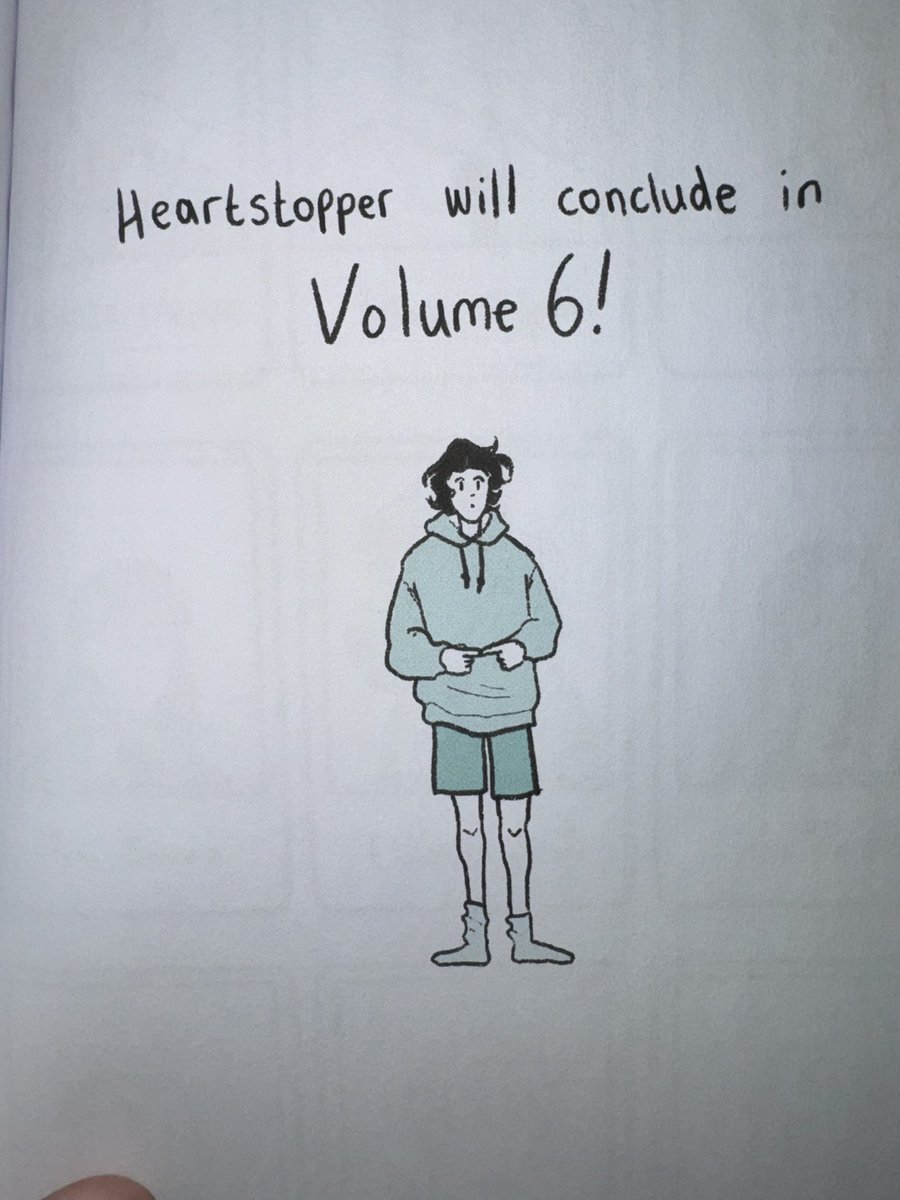 Heartstopper will conclude in
Volume 6!